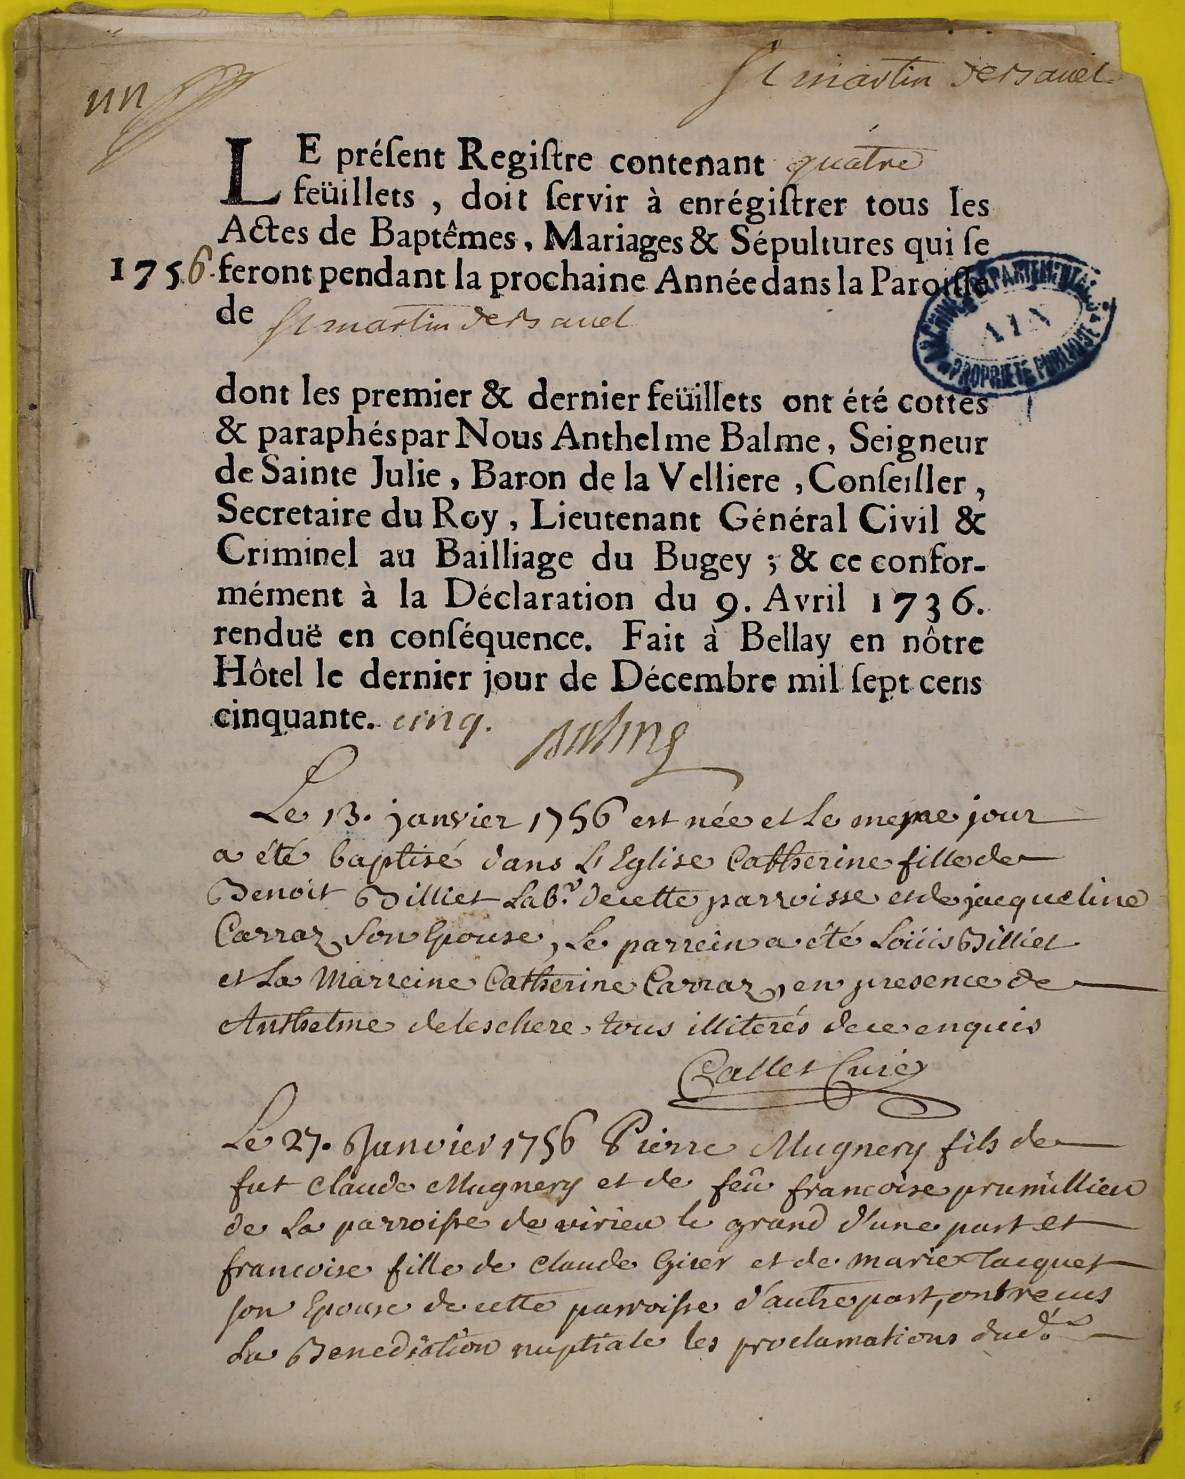 un
St martin de Bavel
LE préſent Regiſtre contenant quatre
feüillets, doit ſervir à enrégiſtrer tous les
Actes de Baptêmes, Mariages & Sépultures qui ſe
1756. feront pendant la prochaine Année dans la Paroiſſe
de St martin de Bavel
ARCHIVES DÉPARTEMENTALES
AIN
PROPRIÉTÉ PUBLIQUE
dont les premier & dernier feüillets ont été cottés
& paraphés par Nous Anthelme Balme, Seigneur
de Sainte Julie, Baron de la Velliere, Conſeiller,
Secretaire du Roy, Lieutenant Général Civil &
Criminel au Bailliage du Bugey; & ce confor-
mément à la Déclaration du 9. Avril 1736.
renduë en conſéquence. Fait à Bellay en nôtre
Hôtel le dernier jour de Décembre mil ſept cens
cinquante. cinq. Balme
Le 13. janvier 1756 est née et Le meme jour
a été baptisé dans L'Eglise Catherine fille de
Benoit Billiet Labr. de cette parroisse et de jacqueline
Carraz Son Epouse, Le parrein a été Loüis Billiet
et La Marreine Catherine Carraz, en presence de
Anthelme deleschere tous illiterés de ce enquis
Callet Curé
Le 27. Janvier 1756 Pierre Mugnery fils de
fut Claude Mugnery et de feû francoise prumillieu
de La parroisse de virieu le grand d'une part et
francoise fille de Claude Girer et de marie Jacquet
son Epouse de cette parroisse d'autre part, ont recus
La Benediction nuptiale les proclamations dud.